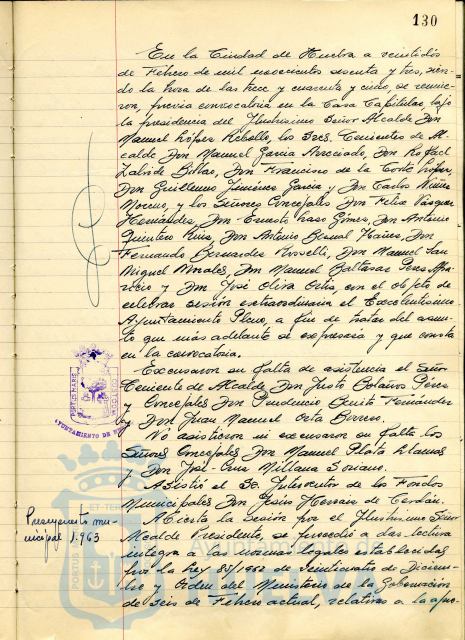 130
En la Ciudad de Huelva a veintidos
de Febrero de mil novecientos sesenta y tres, sien-
do la hora de las trece y cuarenta y cinco, se reunie-
ron, previa convocatoria en la Casa Capitular bajo
la presidencia del Ilustrisimo Señor Alcalde Don
Manuel López Rebollo, los Sres. Tenientes de Al-
calde Don Manuel Garcia Don Rafael
Don Francisco de la Corte López,
Don Guillermo Jiménez Garcia y Don Carlos Núñez
Moreno, y los Señores Concejales Don Felix Vazquez
Hernández, Don Ernesto Lazo Gómez, Don Antonio
Quintero Ruiz, Don Antonio Bernal Ibañez, Don
Fernando Bernardez Rosselli, Don Manuel San
Miguel Morales, Don Manuel Baltasar Perez Apa-
ricio y Don José Oliva Ortiz, con el objeto de
celebrar sesión extraordinaria el Excelentisimo
Ayuntamiento Pleno, a fin de tratar del asun-
to que más adelante se expresará y que consta
en la convocatoria.
Excusaron su falta de asistencia el Señor
Teniente de Alcalde Don Justo Bolaños Perez
y Concejales Don Prudencio Fernández
y Don Juan Manuel Orta Borrero.
No asistieron ni excusaron su falta los
Señores Concejales Don Manuel Plata Llamas
y Don José-Cruz Millana Soriano.
Asistió el Sr. Interventor de los Fondos
Municipales Don Jesús Herraiz de Cerdán.
Presupuesto mu-
nicipal 1.963
Abierta la sesión por el Ilustrisimo Señor
Alcalde Presidente, se procedió a dar lectura
integra a las normas legales establecidas
por la Ley 85/1962 de Veinticuatro de Diciem-
bre y Orden del Ministerio de la Gobernación
de seis de Febrero actual, relativas a la apro-
PORTUS MARIS
AYUNTAMIENTO DE
Ayuntamiento de
HUELVA